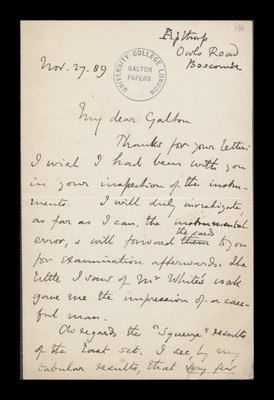 Owls Road
Boscombe
Nov. 27. 89
UNIVERSITY COLLEGE LONDON
GALTON
PAPERS
My dear Galton
Thanks for your letter.
I wish I had been with you
in your inspection of the instru-
ments. I will duly investigate,
as far as I can, the instrumental
error, & will forward them to you
the cards
for examination afterwards. The
little I saw of Mr White's work
gave me the impression of a care-
ful man.
As regards the "Squeeze" results
of the last set. I see, by my
tabular results, that very few